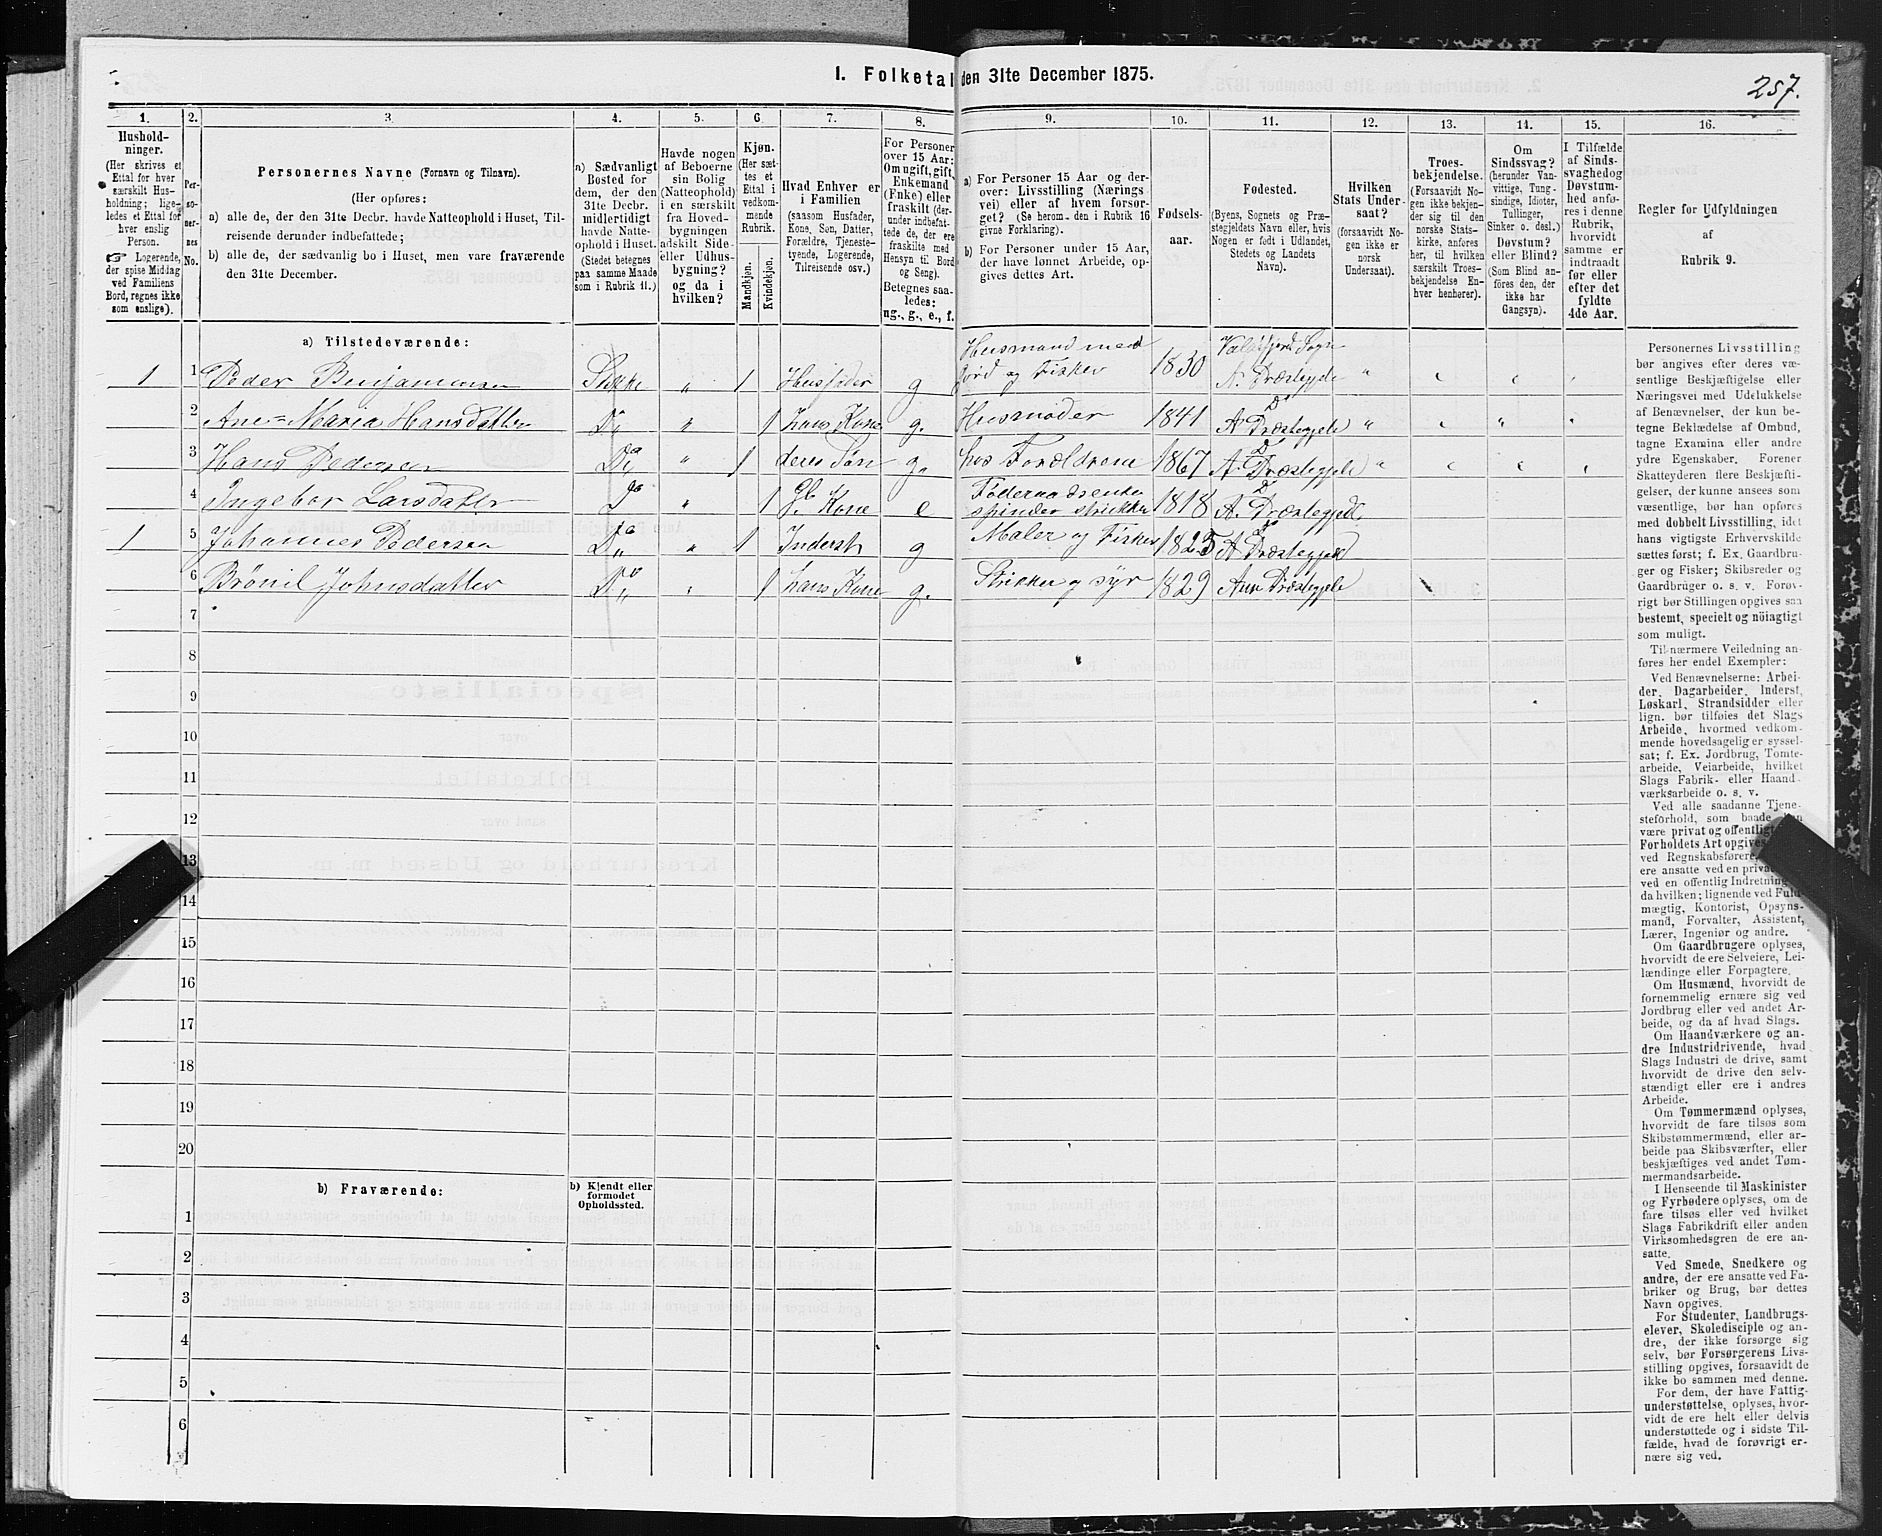 I. Folketal den 31te December 1875.
257.
1.
Hushold-
ninger.
(Her skrives et
Ettal for hver
særskilt Hus-
holdning; lige-
ledes et Ettal for
hver enslig
Person.
☞ Logerende,
der spise Middag
ved Familiens
Bord, regnes ikke
som enslige).
2.
Per-
so-
ner-
nes
No.
3.
Personernes Navne (Fornavn og Tilnavn).
(Her opføres:
a) alle de, der den 31te Decbr. havde Natteophold i Huset, Til-
reisende derunder indbefattede;
b) alle de, der sædvanlig bo i Huset, men vare fraværende
den 31te December.
4.
a) Sædvanligt
Bosted for
dem, der den
31te Decbr.
midlertidigt
havde Natte-
ophold i Huset.
(Stedet betegnes
paa samme Maade
som i Rubrik 11.)
5.
Havde nogen
af Beboerne
sin Bolig
(Natteophold)
i en særskilt
fra Hoved-
bygningen
adskilt Side-
eller Udhus-
bygning?
og da i
hvilken?
6
Kjøn.
(Her sæt-
tes et
Ettal i
vedkom-
mende
Rubrik.
Mandkjøn.
Kvindekjøn.
7.
Hvad Enhver er
i Familien
(saasom Husfader,
Kone, Søn, Datter,
Forældre, Tjeneste-
tyende, Logerende,
Tilreisende osv.)
8.
For Personer
over 15 Aar:
Om ugift, gift,
Enkemand
(Enke) eller
fraskilt (der-
under indbefat-
tede de, der ere
fraskilte med
Hensyn til Bord
og Seng).
Betegnes saa-
ledes:
ug., g., e., f.
9.
a) For Personer 15 Aar og der-
over: Livsstilling (Nærings-
vei) eller af hvem forsør-
get? (Se herom den i Rubrik 16
givne Forklaring).
b) For Personer under 15 Aar,
der have lønnet Arbeide, op-
gives dettes Art.
10.
Fødsels-
aar.
11.
Fødested.
(Byens, Sognets og Præ-
stegjeldets Navn eller, hvis
Nogen er født i Udlandet,
Stedets og Landets
Navn).
12.
Hvilken
Stats Under-
saat?
(forsaavidt No-
gen ikke er
norsk
Undersaat).
13.
Troes-
bekjendelse.
(Forsaavidt No-
gen ikke bekjen-
der sig til den
norske Stats-
kirke, anføres
her, til hvilken
særskilt Troes-
bekjendelse En-
hver henhører).
14.
Om
Sindssvag?
(herunder Van-
vittige, Tung-
sindige, Idioter,
Tullinger,
Sinker o. desl.)
Døvstum?
eller Blind?
(Som Blind an-
føres den, der
ikke har
Gangsyn).
15.
I Tilfælde
af Sinds-
svaghed og
Døvstum-
hed anfø-
res i denne
Rubrik,
hvorvidt
samme er
indtraadt
før eller
efter det
fyldte
4de Aar.
16.
Regler for Udfyldningen
af
Rubrik 9.
a) Tilstedeværende:
1 1 Peder Benjaminsen " 1 Husfader g Husmand med Jord og Fisker 1830 Sogn A. Præstegjeld
2 Ane=Maria Hansdatter Do " 1 hans Kone g. Husmoder 1841 Do A Præstegjeld
3 Hans Pedersen Do " 1 deres Søn hos Forældrene 1867 Do A. Præstegjeld
4 Ingebor Larsdatter Do " 1 Kone e spinder strikker 1818 Do A. Præstegjeld
1 5 Johannes Pedersen Do " 1 Inderst g Maler og Fisker 1825 Do A Præstegjeld
6 Brönil Johnsdatter Do " 1 hans Kone g. Strikker og syr 1829 Præstegjeld
7
8
9
10
11
12
13
14
15
16
17
18
19
20
b) Fraværende:
b) Kjendt eller
formodet
Opholdssted.
1
2
3
4
5
6
Personernes Livsstilling
bør angives efter deres væ-
sentlige Beskjæftigelse eller
Næringsvei med Udelukkelse
af Benævnelser, der kun be-
tegne Beklædelse af Ombud,
tagne Examina eller andre
ydre Egenskaber. Forener
Skatteyderen flere Beskjæfti-
gelser, der kunne ansees som
væsentlige, bør han opføres
med dobbelt Livsstilling, idet
hans vigtigste Erhvervskilde
sættes først; f. Ex. Gaardbru-
ger og Fisker; Skibsreder og
Gaardbruger o. s. v. Forøv-
rigt bør Stillingen opgives saa
bestemt, specielt og nöiagtigt
som muligt.
Til nærmere Veiledning an-
føres her endel Exempler:
Ved Benævnelserne: Arbei-
der, Dagarbeider, Inderst,
Løskarl, Strandsidder eller
lign. bør tilføies det Slags
Arbeide, hvormed vedkom-
mende hovedsagelig er syssel-
sat; f. Ex. Jordbrug, Tomte-
arbeide, Veiarbeide, hvilket
Slags Fabrik- eller Haand-
værksarbeide o. s. v.
Ved alle saadanne Tjene-
steforhold, som baade kan
være privat og offentligt,
Forholdets Art opgives
ved Regnskabsførere,
ere ansatte ved en
ved en offentlig Indretning
da hvilken; lignende ved Fuld-
mægtig, Kontorist, Opsyns-
mand, Forvalter, Assistent,
Lærer, Ingeniør og andre.
Om Gaardbrugere oplyses,
hvorvidt de ere Selveiere, Lei-
lændinge eller Forpagtere.
Om Husmænd, hvorvidt de
fornemmelig ernære sig ved
Jordbrug eller ved andet Ar-
beide, og da af hvad Slags.
Om Haandværkere og an-
dre Industridrivende, hvad
Slags Industri de drive, samt
hvorvidt de drive den selv-
stændigt eller ere i andres
Arbeide.
Om Tømmermænd oplyses,
hvorvidt de fare tilsøs som
Skibstømmermænd, eller ar-
beide paa Skibsværfter, eller
beskjæftiges ved andet Tøm-
mermandsarbeide.
I Henseende til Maskinister
og Fyrbødere oplyses, om de
fare tilsøs eller ved hvilket
Slags Fabrikdrift eller anden
Virksomhedsgren de ere an-
satte.
Ved Smede, Snedkere og
andre, der ere ansatte ved Fa-
briker og Brug, bør dettes
Navn opgives.
For Studenter, Landbrugs-
elever, Skoledisciple og an-
dre, der ikke forsørge sig
selv, bør Forsørgerens Livs-
stilling opgives, forsaavidt de
ikke bo sammen med denne.
For dem, der have Fattig-
understøttelse, oplyses, hvor-
vidt de ere helt eller delvis
understøttede og i sidste Til-
fælde, hvad de forøvrigt er-
nære sig ved.